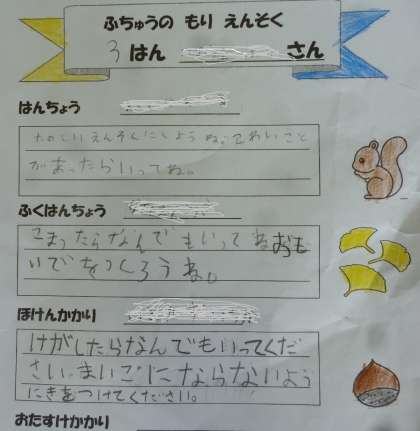 ふちゅうの もり えんそく
3 はん さん
はんちょう
たのしいえんそくにしようね。こわいこと
があったらいってね。
ふくはんちょう
こまったらなんでもいってねおも
いでをつくろうね。
ほけんかかり
けがしたらなんでもいってくだ
さい。まいごにならないよう
にきをつけてください。
おたすけかかり